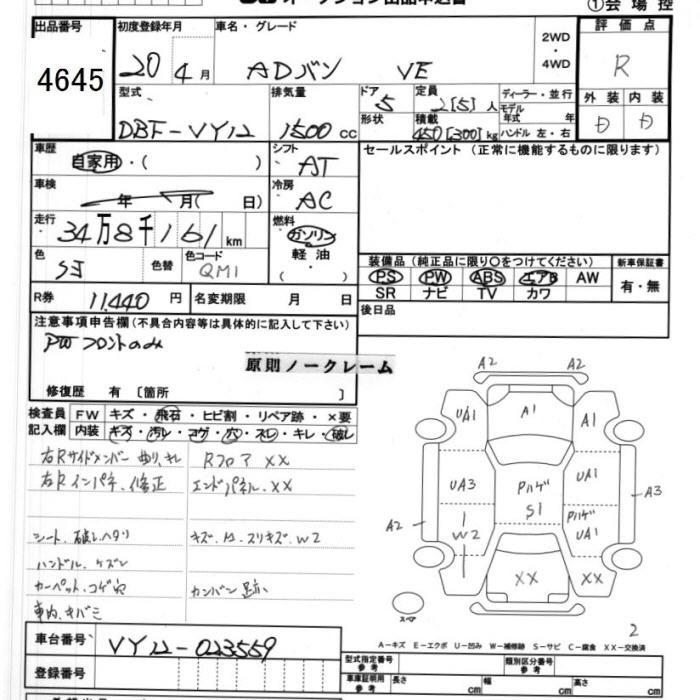 オークション出品申込書
①会場控
出品番号 4645
初度登録年月 20年 4月
車名・グレード ADバン VE
2WD ・ 4WD
評価点 R
外装 内装
型式 DBF-VY12
排気量 1500cc
ドア 5
形状
定員 2[5]人
積載 450[300]kg
ディーラー・並行
モデル年式 年
ハンドル 左・右
車歴 自家用・( )
シフト AT
セールスポイント(正常に機能するものに限ります)
車検 年 月( 日)
冷房 AC
走行 34万8千161km
燃料 ガソリン 軽油 ・ ( )
色 色替 色コード QM1
装備品(純正品に限り○をつけてください)
新車保証書
PS PW ABS エアB AW
SR ナビ TV カワ
有・無
R券 11,440円 名変期限 月 日
後日品
注意事項申告欄(不具合内容等は具体的に記入して下さい)
PWフロントのみ
原則ノークレーム
修復歴 有 [箇所 ]
検査員記入欄
FW キズ・飛石・ヒビ割・リペア跡・×要
内装 キズ・汚レ・コゲ・穴・スレ・キレ・破レ
右Rサイドメンバー 曲り、キレ RフロアXX
右Rインパネ、修正 エンドパネル、XX
シート、破レ、ヘタリ
ハンドル、ケズレ
カーペット、コゲ穴 カンバン跡
車内、キバミ
A2 A2
UA1 A1 A1
UA3 Pハゲ S1 UA1 A3
A2 W2 Pハゲ UA1
XX XX
スペア
2
A-キズ E-エクボ U-凹み W-補修跡 S-サビ C-腐食 XX-交換済
車台番号 VY12-023559
登録番号
型式指定番号 参考
類別区分番号 参考
車庫証明用 参考 長さ cm 幅 cm 高さ cm